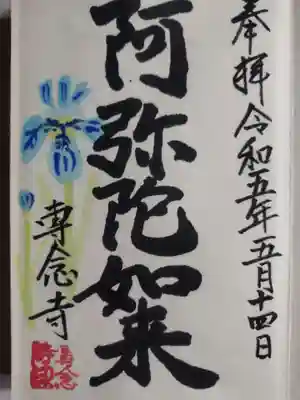 奉拝令和五年五月十四日
阿弥陀如来
専念寺